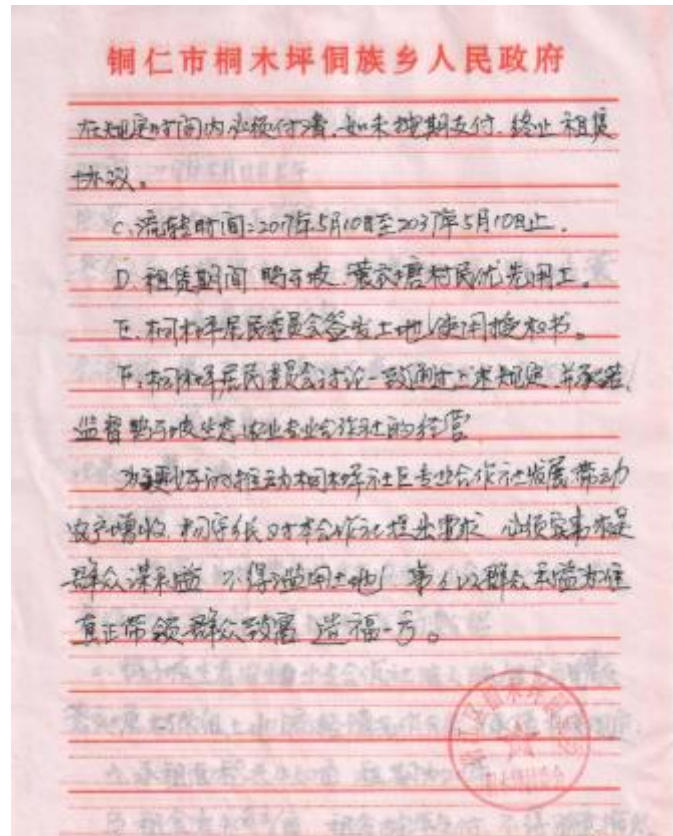 铜仁市桐木坪侗族乡人民政府
在规定时间内必须付清，如未按期支付，终止租赁
协议。
C、流转时间：2017年5月10日至2037年5月10日止。
D、租赁期间 鸭子坡、蓑衣塘村民优先用工。
E、桐木坪居民委员会签发土地使用授权书。
F、桐木坪居民委员会讨论一致通过上述规定，并承诺
监督鸭子坡生态农业专业合作社的经营
为更好的推动桐木坪社区专业合作社发展 带动
农户增收，对本合作社提出要求 必须实事求是
群众谋利益 不得滥用土地 事事以群众利益为住
真正带领群众致富 造福一方。